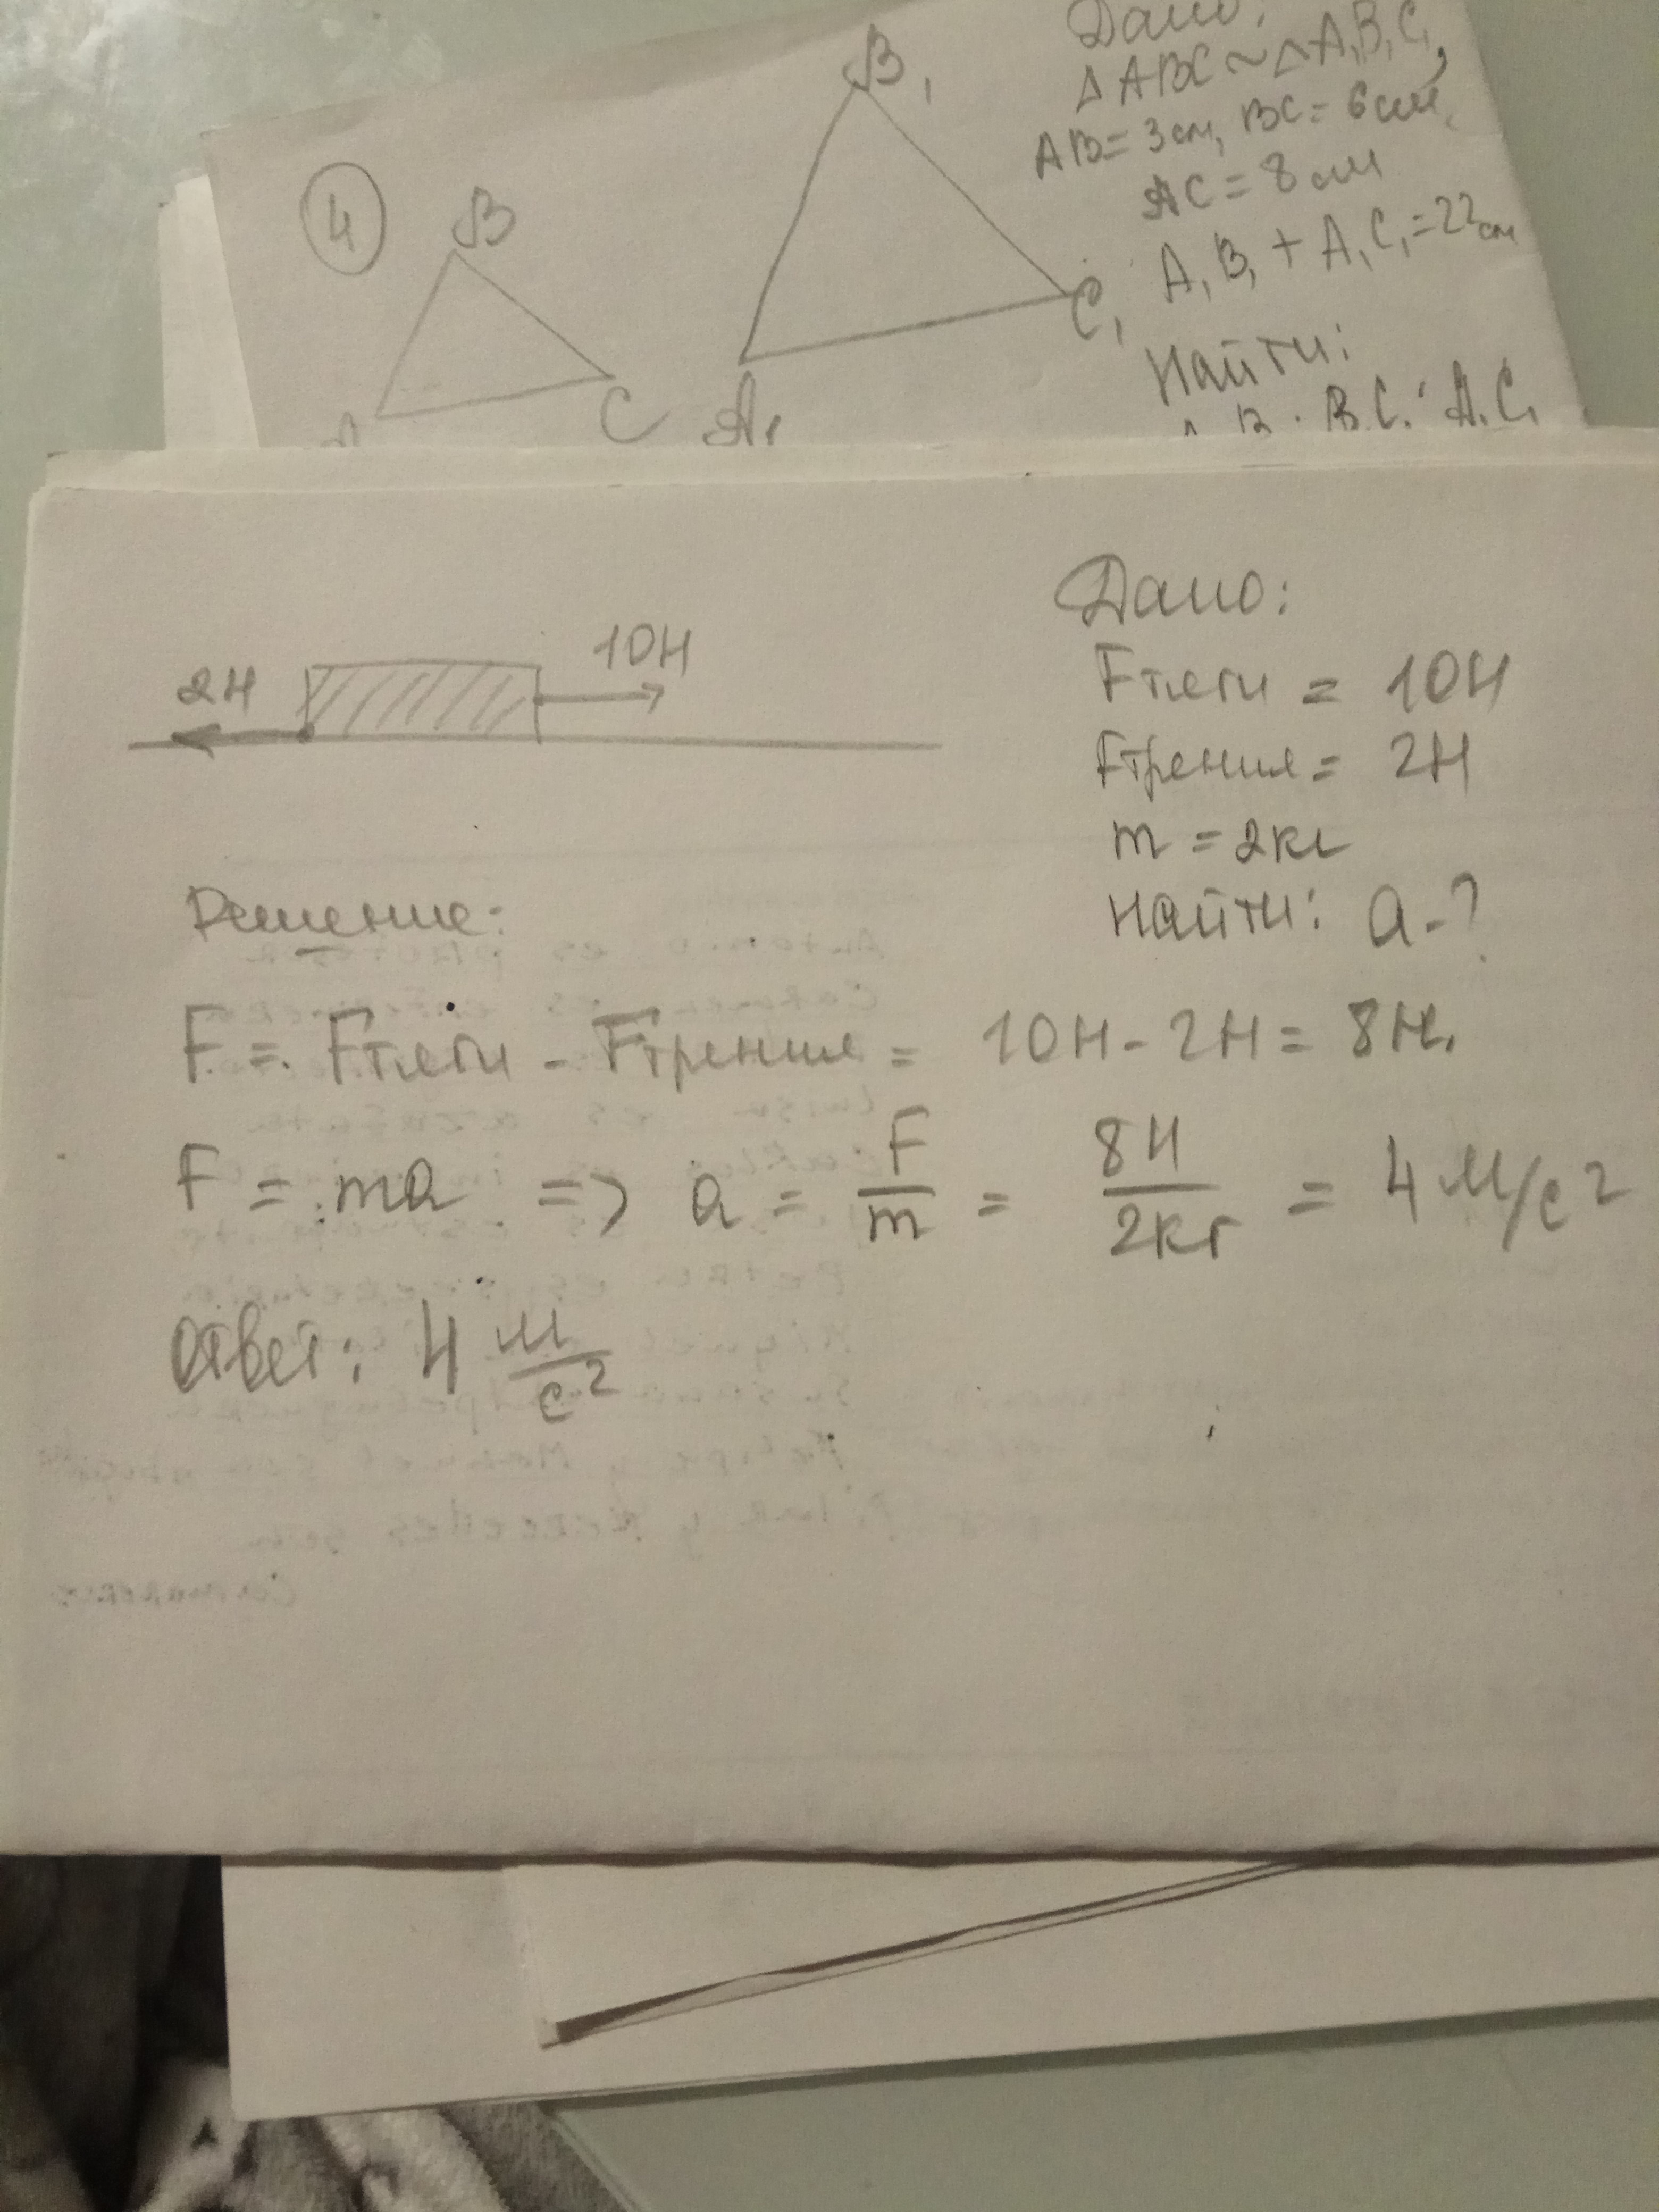 Дано:
④
△ABC ~ △A₁B₁C₁,
AB = 3 см, BC = 6 см,
AC = 8 см
A₁B₁ + A₁C₁ = 22 см
Найти:
A₁C₁
B
A
C
B₁
A₁
C₁
2Н
10Н
Дано:
Fтяги = 10Н
Fтрения = 2Н
m = 2кг
Найти: a - ?
Решение:
F = Fтяги - Fтрения = 10Н - 2Н = 8Н.
F = ma => a = F/m = 8Н/2кг = 4 м/с²
Ответ: 4 м/с²